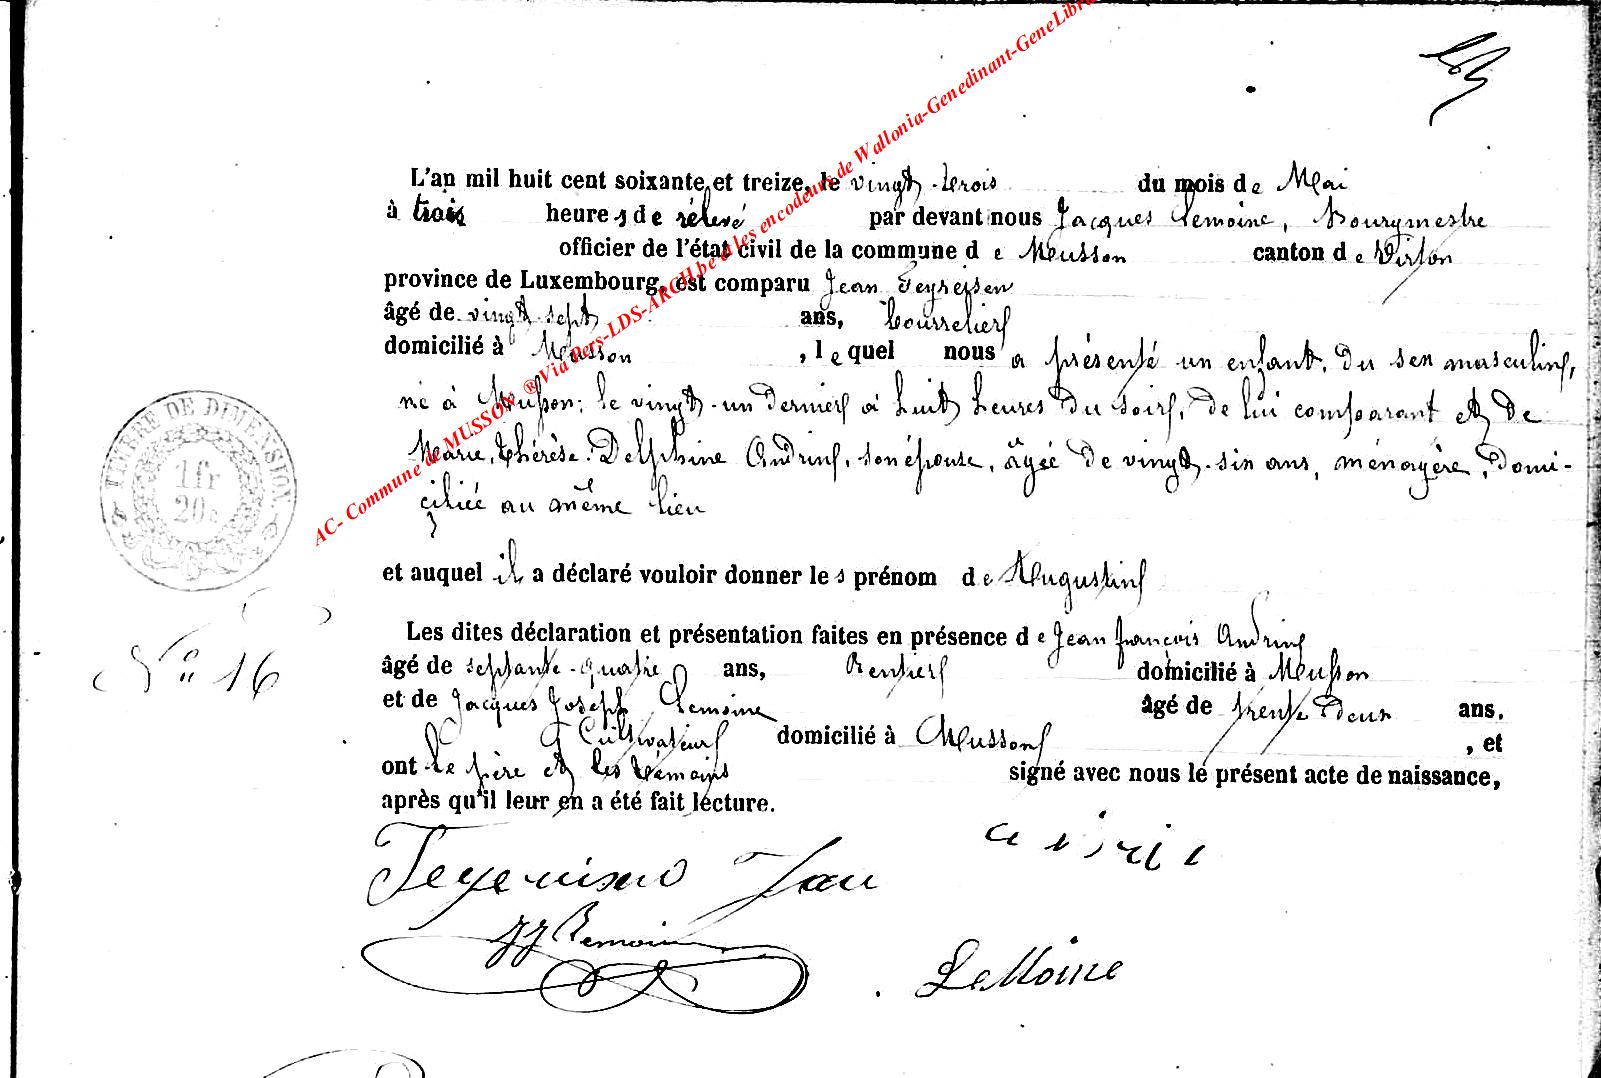 L'an mil huit cent soixante et treize, le vingt-trois du mois de Mai
à trois heures de rélevé par devant nous Jacques Lemoine, Bourgmestre
officier de l'état civil de la commune de Musson canton de Virton
province de Luxembourg, est comparu Jean Teyressen
âgé de vingt sept ans, bourrelier
domicilié à Musson, lequel nous a présenté un enfant du sex masculin,
né à Musson; le vingt-un dernier à huit heures du soir, de lui comparant et de
Marie, Thérèse, Delphine Andrin, son épouse, âgée de vingt-six ans, ménagère, domi-
ciliée au même lieu
et auquel il a déclaré vouloir donner les prénom de Augustin
Les dites déclaration et présentation faites en présence de Jean françois Andrin
âgé de septante-quatre ans, Rentier domicilié à Musson
et de Jacques Joseph Lemoine âgé de trente deux ans,
Cultivateur domicilié à Musson, et
ont le père et les témoins signé avec nous le présent acte de naissance,
après qu'il leur en a été fait lecture.
Jean
JJ Lemoine
LeMoine
TIMBRE DE DIMENSION.
1 fr
20c
No 16
AC- Commune de MUSSON ® Via Pers-LDS-ARCH.be et les encodeurs de Wallonia-Genedinant-GeneLibra